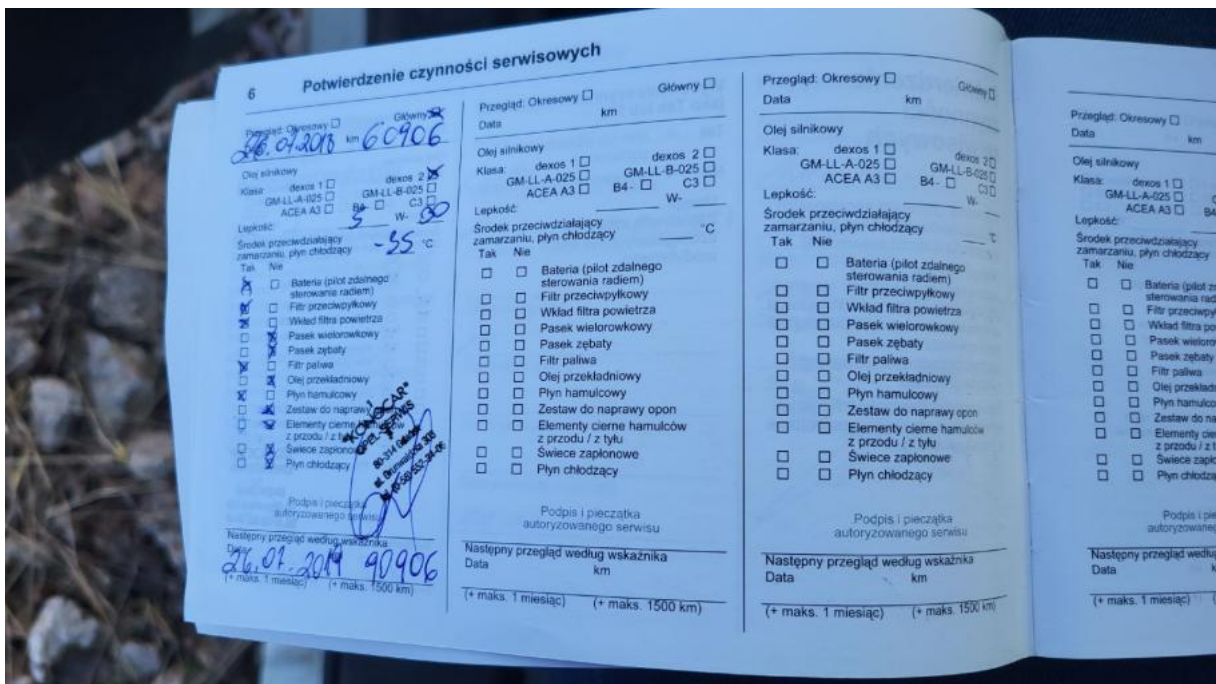 6 Potwierdzenie czynności serwisowych
Przegląd: Okresowy ☐ Główny ☒
26.01.2018 km 60906
Olej silnikowy
Klasa: dexos 1 ☐ dexos 2 ☒
GM-LL-A-025 ☐ GM-LL-B-025 ☐
ACEA A3 ☐ B4- ☐ C3 ☐
Lepkość: 5 W- 30
Środek przeciwdziałający
zamarzaniu, płyn chłodzący -35 °C
Tak Nie
☒ ☐ Bateria (pilot zdalnego
sterowania radiem)
☒ ☐ Filtr przeciwpyłkowy
☒ ☐ Wkład filtra powietrza
☐ ☒ Pasek wielorowkowy
☐ ☒ Pasek zębaty
☒ ☐ Filtr paliwa
☐ ☒ Olej przekładniowy
☒ ☐ Płyn hamulcowy
☐ ☒ Zestaw do naprawy
☐ ☒ Elementy cierne hamulców
z przodu / z tyłu
☐ ☒ Świece zapłonowe
☐ ☒ Płyn chłodzący
"KONOCAR"
OPEL SERWIS
80-314 Gdańsk
Podpis i pieczątka
autoryzowanego serwisu
Następny przegląd według wskaźnika
26.01.2019 90906
(+ maks. 1 miesiąc) (+ maks. 1500 km)
Przegląd: Okresowy ☐ Główny ☐
Data km
Olej silnikowy
Klasa: dexos 1 ☐ dexos 2 ☐
GM-LL-A-025 ☐ GM-LL-B-025 ☐
ACEA A3 ☐ B4- ☐ C3 ☐
Lepkość: W-
Środek przeciwdziałający
zamarzaniu, płyn chłodzący °C
Tak Nie
☐ ☐ Bateria (pilot zdalnego
sterowania radiem)
☐ ☐ Filtr przeciwpyłkowy
☐ ☐ Wkład filtra powietrza
☐ ☐ Pasek wielorowkowy
☐ ☐ Pasek zębaty
☐ ☐ Filtr paliwa
☐ ☐ Olej przekładniowy
☐ ☐ Płyn hamulcowy
☐ ☐ Zestaw do naprawy opon
☐ ☐ Elementy cierne hamulców
z przodu / z tyłu
☐ ☐ Świece zapłonowe
☐ ☐ Płyn chłodzący
Podpis i pieczątka
autoryzowanego serwisu
Następny przegląd według wskaźnika
Data km
(+ maks. 1 miesiąc) (+ maks. 1500 km)
Przegląd: Okresowy ☐ Główny ☐
Data km
Olej silnikowy
Klasa: dexos 1 ☐ dexos 2 ☐
GM-LL-A-025 ☐ GM-LL-B-025 ☐
ACEA A3 ☐ B4- ☐ C3 ☐
Lepkość: W-
Środek przeciwdziałający
zamarzaniu, płyn chłodzący °C
Tak Nie
☐ ☐ Bateria (pilot zdalnego
sterowania radiem)
☐ ☐ Filtr przeciwpyłkowy
☐ ☐ Wkład filtra powietrza
☐ ☐ Pasek wielorowkowy
☐ ☐ Pasek zębaty
☐ ☐ Filtr paliwa
☐ ☐ Olej przekładniowy
☐ ☐ Płyn hamulcowy
☐ ☐ Zestaw do naprawy opon
☐ ☐ Elementy cierne hamulców
z przodu / z tyłu
☐ ☐ Świece zapłonowe
☐ ☐ Płyn chłodzący
Podpis i pieczątka
autoryzowanego serwisu
Następny przegląd według wskaźnika
Data km
(+ maks. 1 miesiąc) (+ maks. 1500 km)
Przegląd: Okresowy ☐
Data km
Olej silnikowy
Klasa: dexos 1 ☐
GM-LL-A-025 ☐
ACEA A3 ☐ B4
Lepkość:
Środek przeciwdziałający
zamarzaniu, płyn chłodzący
Tak Nie
☐ ☐ Bateria (pilot
sterowania
☐ ☐ Filtr
☐ ☐ Wkład filtra
☐ ☐ Pasek
☐ ☐ Pasek zębaty
☐ ☐ Filtr paliwa
☐ ☐ Olej
☐ ☐ Płyn
☐ ☐ Zestaw do
☐ ☐ Elementy
z przodu / z
☐ ☐ Świece
☐ ☐ Płyn
Podpis i
Następny przegląd
Data
(+ maks. 1 miesiąc)